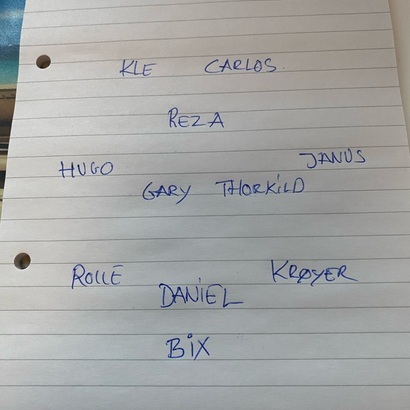 KLE CARLOS
REZA
HUGO JANUS
GARY THORKiLD
ROLLE KRØYER
DANiEL
BiX